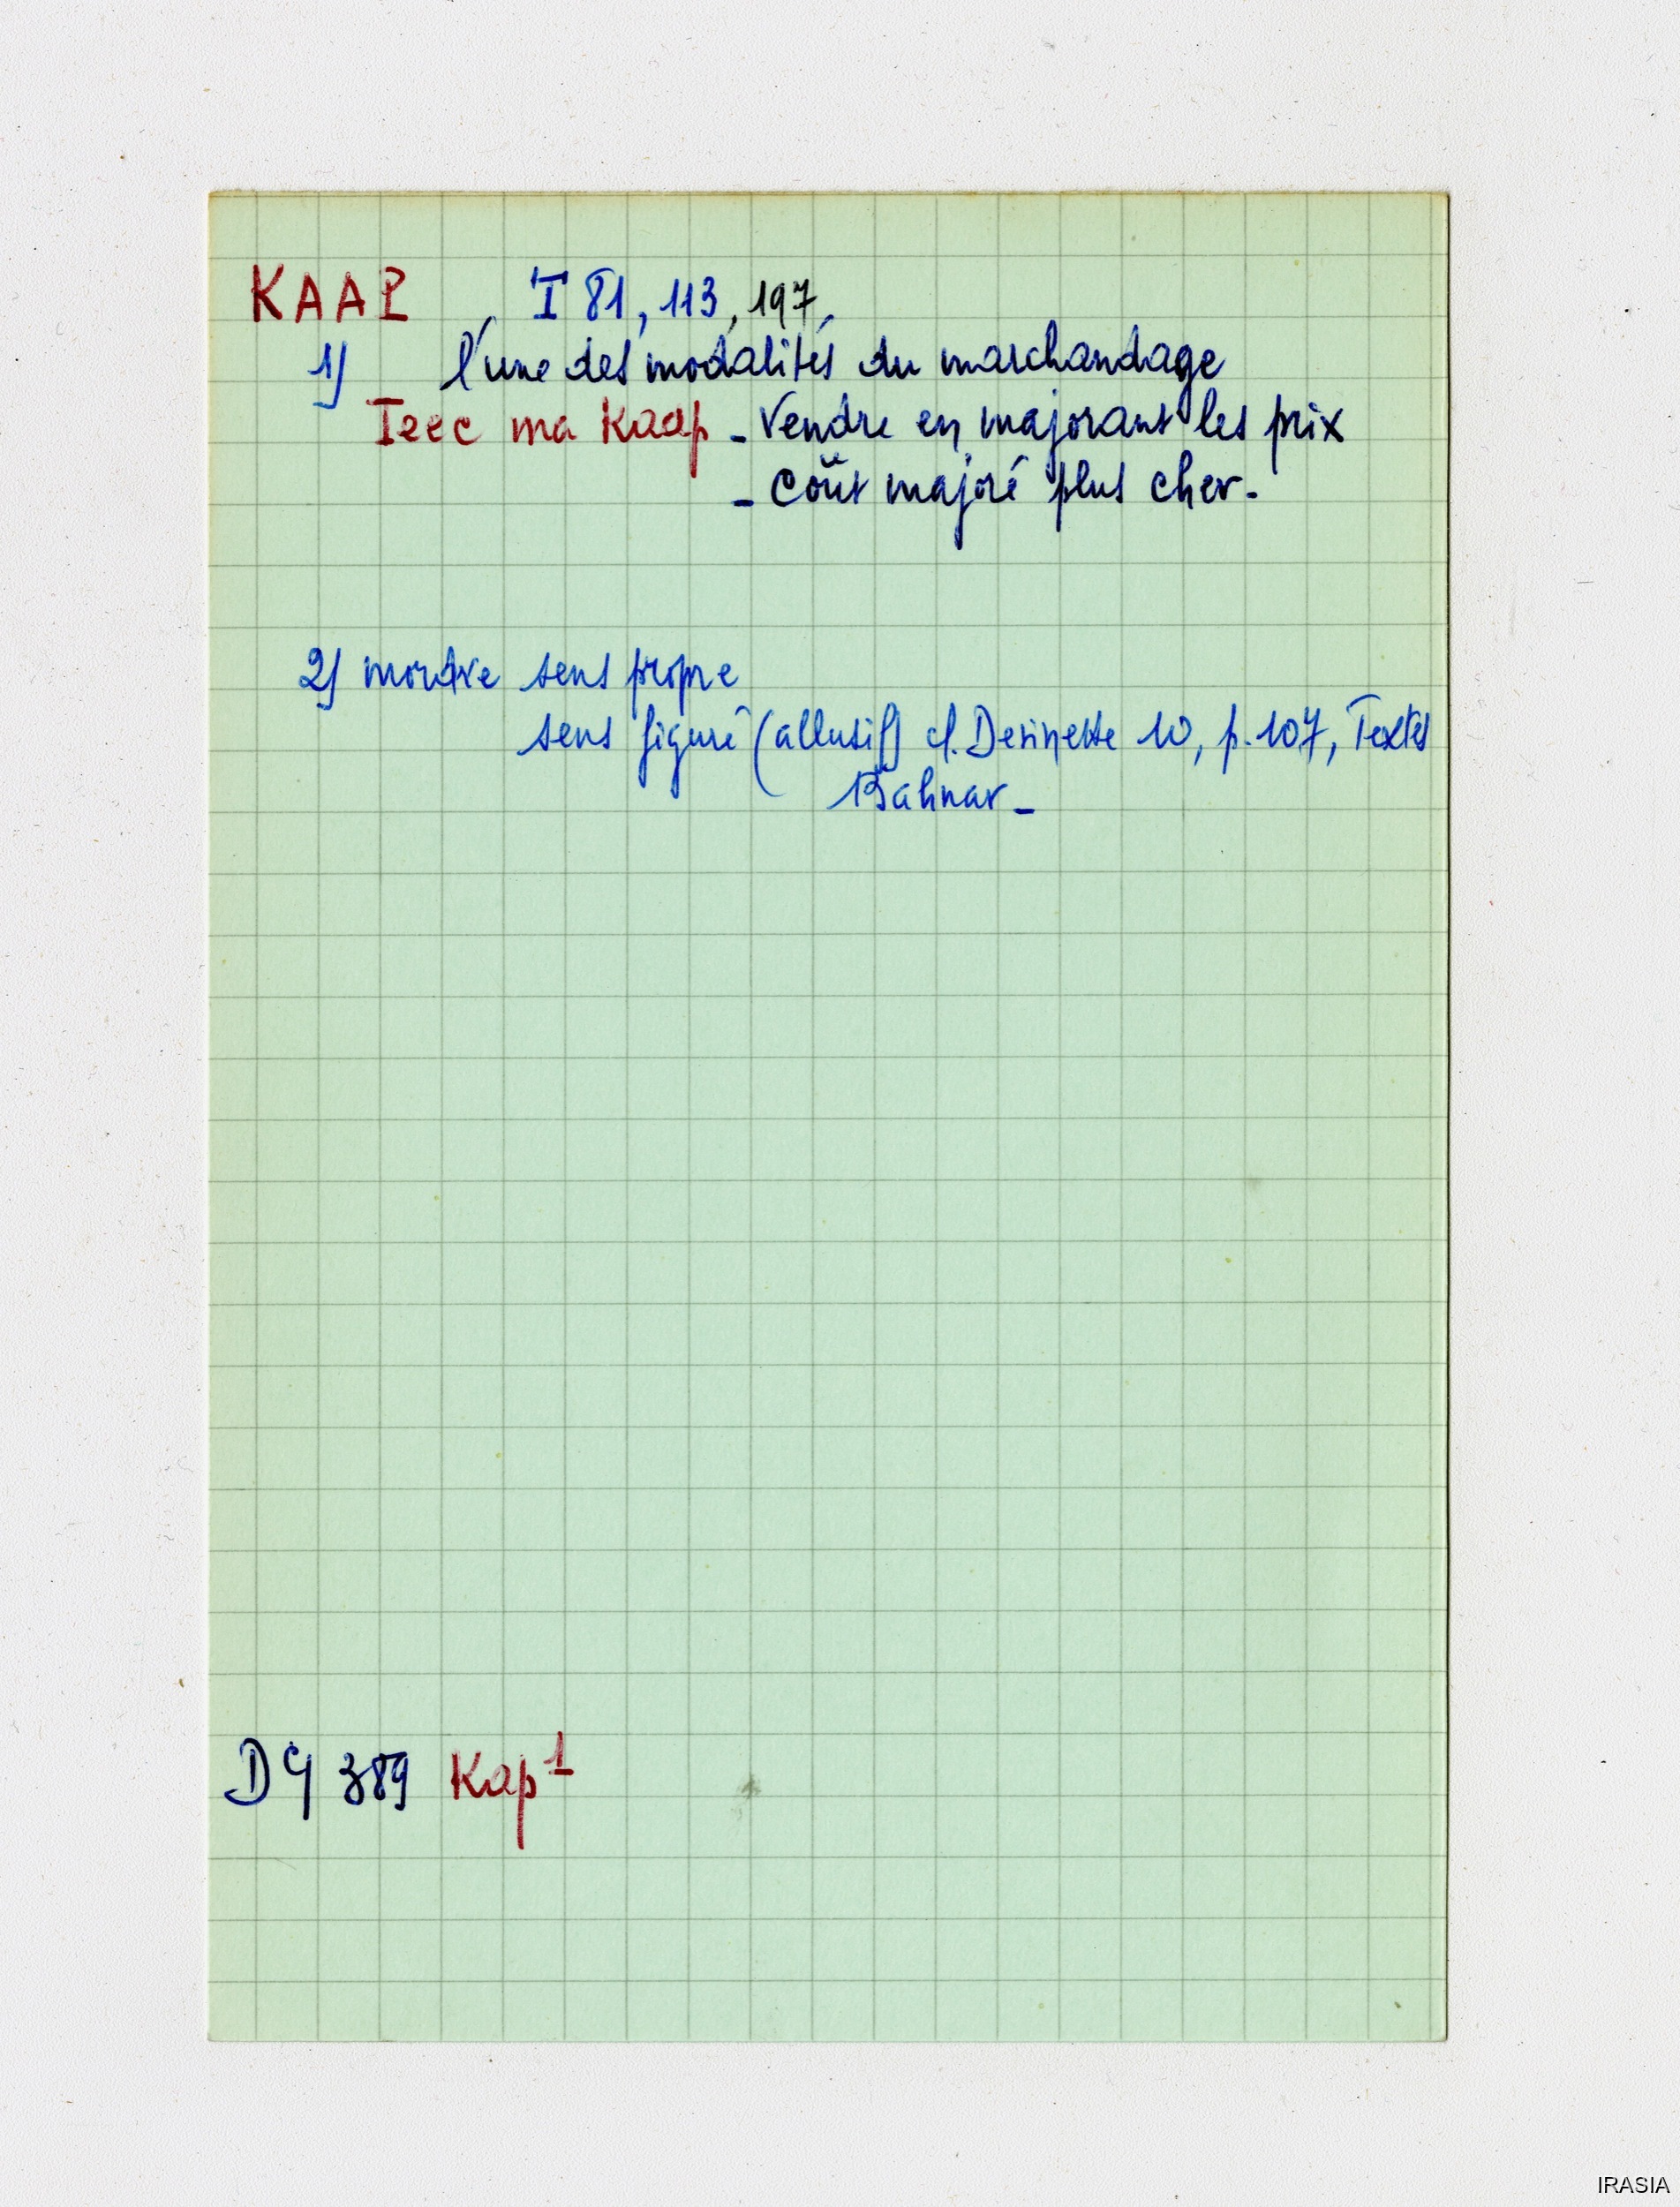 KAAP I 81, 113, 197,
1) l'une des modalités du marchandage
Teec ma Kaap - Vendre en majorant les prix
- Coût majoré plus cher -
2) mordre sens propre
sens figuré (allusif) cf. Devinette 10, p. 107, Textes
Bahnar -
DG 389 Kap1
IRASIA